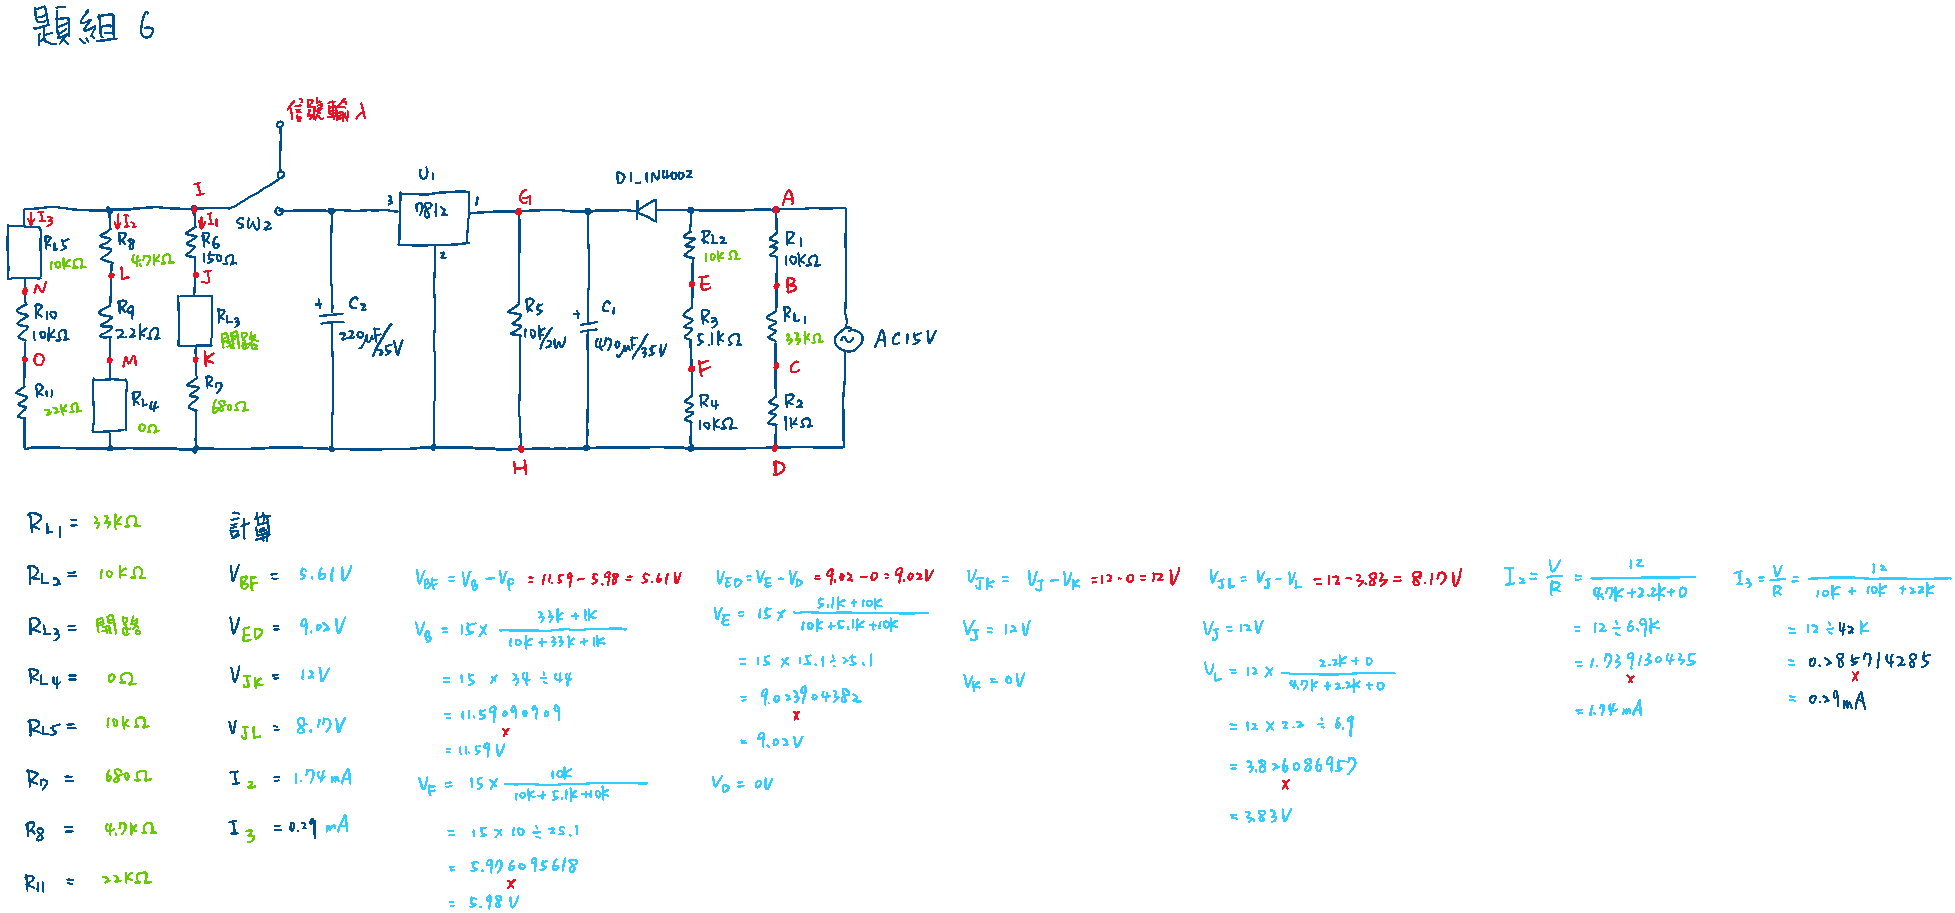 題組 6
信號輸入
I
SW2
3 U1 7812 1
2
G
D1_1N4002
A
I3
I2
I1
RL5
10KΩ
R8
4.7KΩ
R6
150Ω
RL2
10KΩ
R1
10KΩ
N
L
J
E
B
R10
10KΩ
R9
2.2KΩ
RL3
開路
+ C2
220μF/25V
R5
10K/2W
+ C1
470μF/35V
R3
5.1KΩ
RL1
33KΩ
AC15V
O
M
K
F
C
R11
22KΩ
RL4
0Ω
R7
680Ω
R4
10KΩ
R2
1KΩ
H
D
RL1 = 33KΩ
RL2 = 10KΩ
RL3 = 開路
RL4 = 0Ω
RL5 = 10KΩ
R7 = 680Ω
R8 = 4.7KΩ
R11 = 22KΩ
計算
VBF = 5.61V
VED = 9.02V
VJK = 12V
VJL = 8.17V
I2 = 1.74mA
I3 = 0.29mA
VBF = VB - VF = 11.59 - 5.98 = 5.61V
VB = 15 × 33K+1K / 10K+33K+1K
= 15 × 34 ÷ 44
= 11.59090909
×
= 11.59V
VF = 15 × 10K / 10K+5.1K+10K
= 15 × 10 ÷ 25.1
= 5.976095618
×
= 5.98V
VED = VE - VD = 9.02 - 0 = 9.02V
VE = 15 × 5.1K+10K / 10K+5.1K+10K
= 15 × 15.1 ÷ 25.1
= 9.023904382
×
= 9.02V
VD = 0V
VJK = VJ - VK = 12 - 0 = 12V
VJ = 12V
VK = 0V
VJL = VJ - VL = 12 - 3.83 = 8.17V
VJ = 12V
VL = 12 × 2.2K+0 / 4.7K+2.2K+0
= 12 × 2.2 ÷ 6.9
= 3.826086957
×
= 3.83V
I2 = V/R = 12 / 4.7K+2.2K+0
= 12 ÷ 6.9K
= 1.739130435
×
= 1.74mA
I3 = V/R = 12 / 10K + 10K + 22K
= 12 ÷ 42K
= 0.285714285
×
= 0.29mA